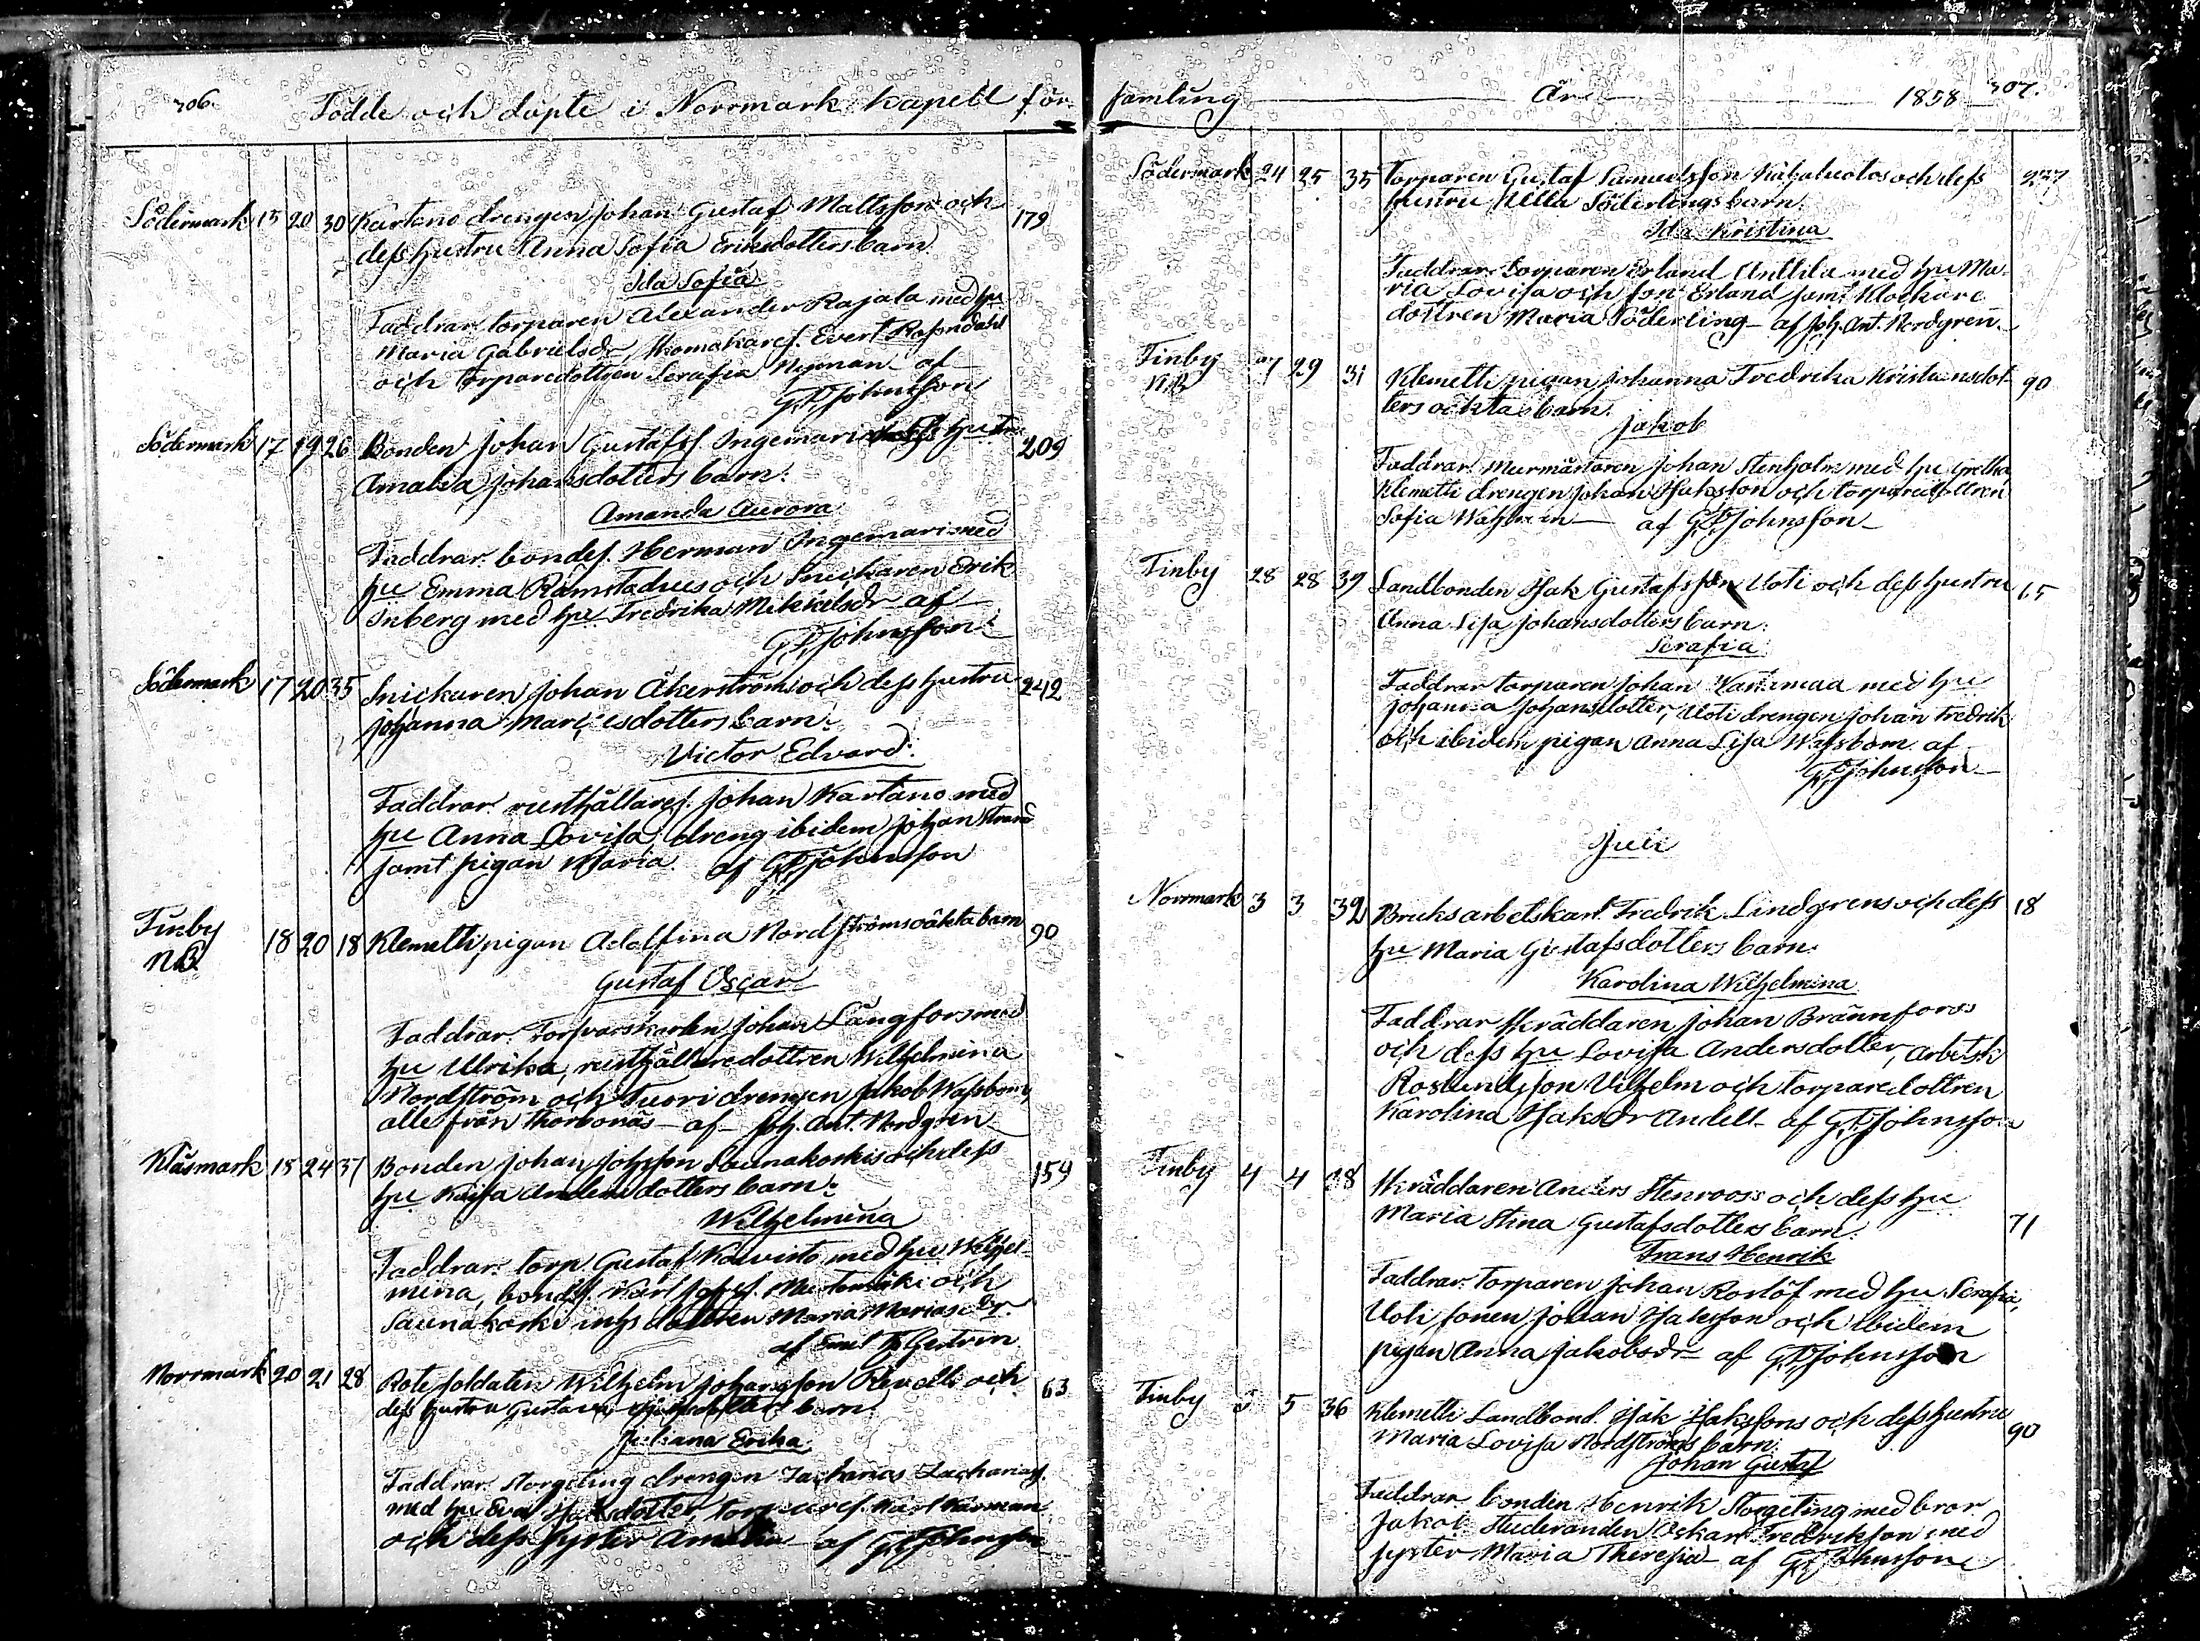 306. Födde och döpte i Norrmark kapell för
Södermark 15 20 30 Kartano drengen Johan Gustaf Mattsson och 179
dess hustru Anna Sofia Eriksdotters barn
Ida Sofia
Faddrar: torparen Alexander Rajala med hu
Maria Gabrielsdr, Evert
och torparedottren Serafia Nyman af
G.P. Johnsson
Södermark 17 19 26 Bonden Johan Gustafs. Ingemari hustru 209
Amalia Johansdotters barn.
Amanda Aurora
Faddrar: bondes. Herman Ingemari med
hu Emma Ramstadius och Snickaren Erik
Inberg med hu Fredrika Mikkelsdr af
G.P. Johnsson
Södermark 17 20 35 Snickaren Johan Åkerströms och dess hustru 242
Johanna dotters barn.
Victor Edvard.
Faddrar: rusthållares. Johan Kartano med
hu Anna Lovisa, dreng ibidem Johan
samt pigan Maria. af G.P. Johnsson
Tinby
NB 18 20 18 Klemetti pigan Adolfina Nordströms oäkta barn 90
Gustaf Oscar
Faddrar: Johan Långfors med
hu Ulrika, rusthållaredottren Wilhelmina
Nordström och Tuori drengen Jakob Wassbom,
alle från Thorbonäs af Joh. Ant. Nordgren
Klåsmark 18 24 37 Bonden Johan Johsson Saunakorkis och dess 159
hu Kajsa dotters barn.
Wilhelmina
Faddrar: torp. Gustaf Koivisto med hu Wilhel-
mina, bondes. Karl och
Saunakorki inhs dottren Maria Mariasdr
af
Norrmark 20 21 28 Rote soldaten Wilhelm Johansson och 63
dess hustru Gustava barn.
Juliana Erika.
Faddrar: Storgeting drengen Zacharias Zacharias.
med hu Eva dotter, torpares. Karl
och dess syster Amalia af G.P. Johnsson
samling År 1858 307.
Södermark 24 25 35 Torparen Gustaf Samuelsson och dess 277
hustru Ulla Söderlings barn.
Ida Kristina
Faddrar: torparen Erland Anttila med hu Ma-
ria Lovisa och son Erland samt Klockare
dottren Maria Söderling af Joh. Ant. Nordgren.
Tinby
NB 27 29 31 Klemetti pigan Johanna Fredrika Kristiansdot- 90
ters oäkta barn.
Jakob
Faddrar: murmästaren Johan Stenholm med hu Gretha,
Klemetti drengen Johan Isaksson och torparedottren
Sofia af G.P. Johnsson
Tinby 28 28 39 Landbonden Isak Gustafsson Uoti och dess hustru 65
Anna Lisa Johansdotters barn.
Serafia
Faddrar torparen Johan med hu
Johanna Johansdotter, Uoti drengen Johan Fredrik
och ibidem pigan Anna Lisa Wassbom. af
G.P. Johnsson
Juli
Norrmark 3 3 32 Bruksarbetskarl. Fredrik Lindgrens och dess 18
hu Maria Gustafsdotters barn.
Karolina Wilhelmina
Faddrar Skräddaren Johan Brännfors
och dess hu Lovisa Andersdotter, Arbetsk.
Roslunds son Vilhelm och torparedottren
Karolina Isaksdr Andell af G.P. Johnsson
Tinby 4 4 28 Skräddaren Anders Stenroos och dess hu
Maria Stina Gustafsdotters barn. 71
Frans Henrik
Faddrar: Torparen Johan Roslöf med hu Serafia,
Uoti sonen Johan Isaksson och ibidem
pigan Anna Jakobsdr af G.P. Johnsson
Tinby 5 5 36 Klemetti Landbond. Isak Isakssons och dess hustru
Maria Lovisa Nordströms barn. 90
Johan Gustaf
Faddrar bonden Henrik Storgeting med bror
Jakob. Studeranden Oskar Fredriksson med
syster Maria Theresia af G.P. Johnsson